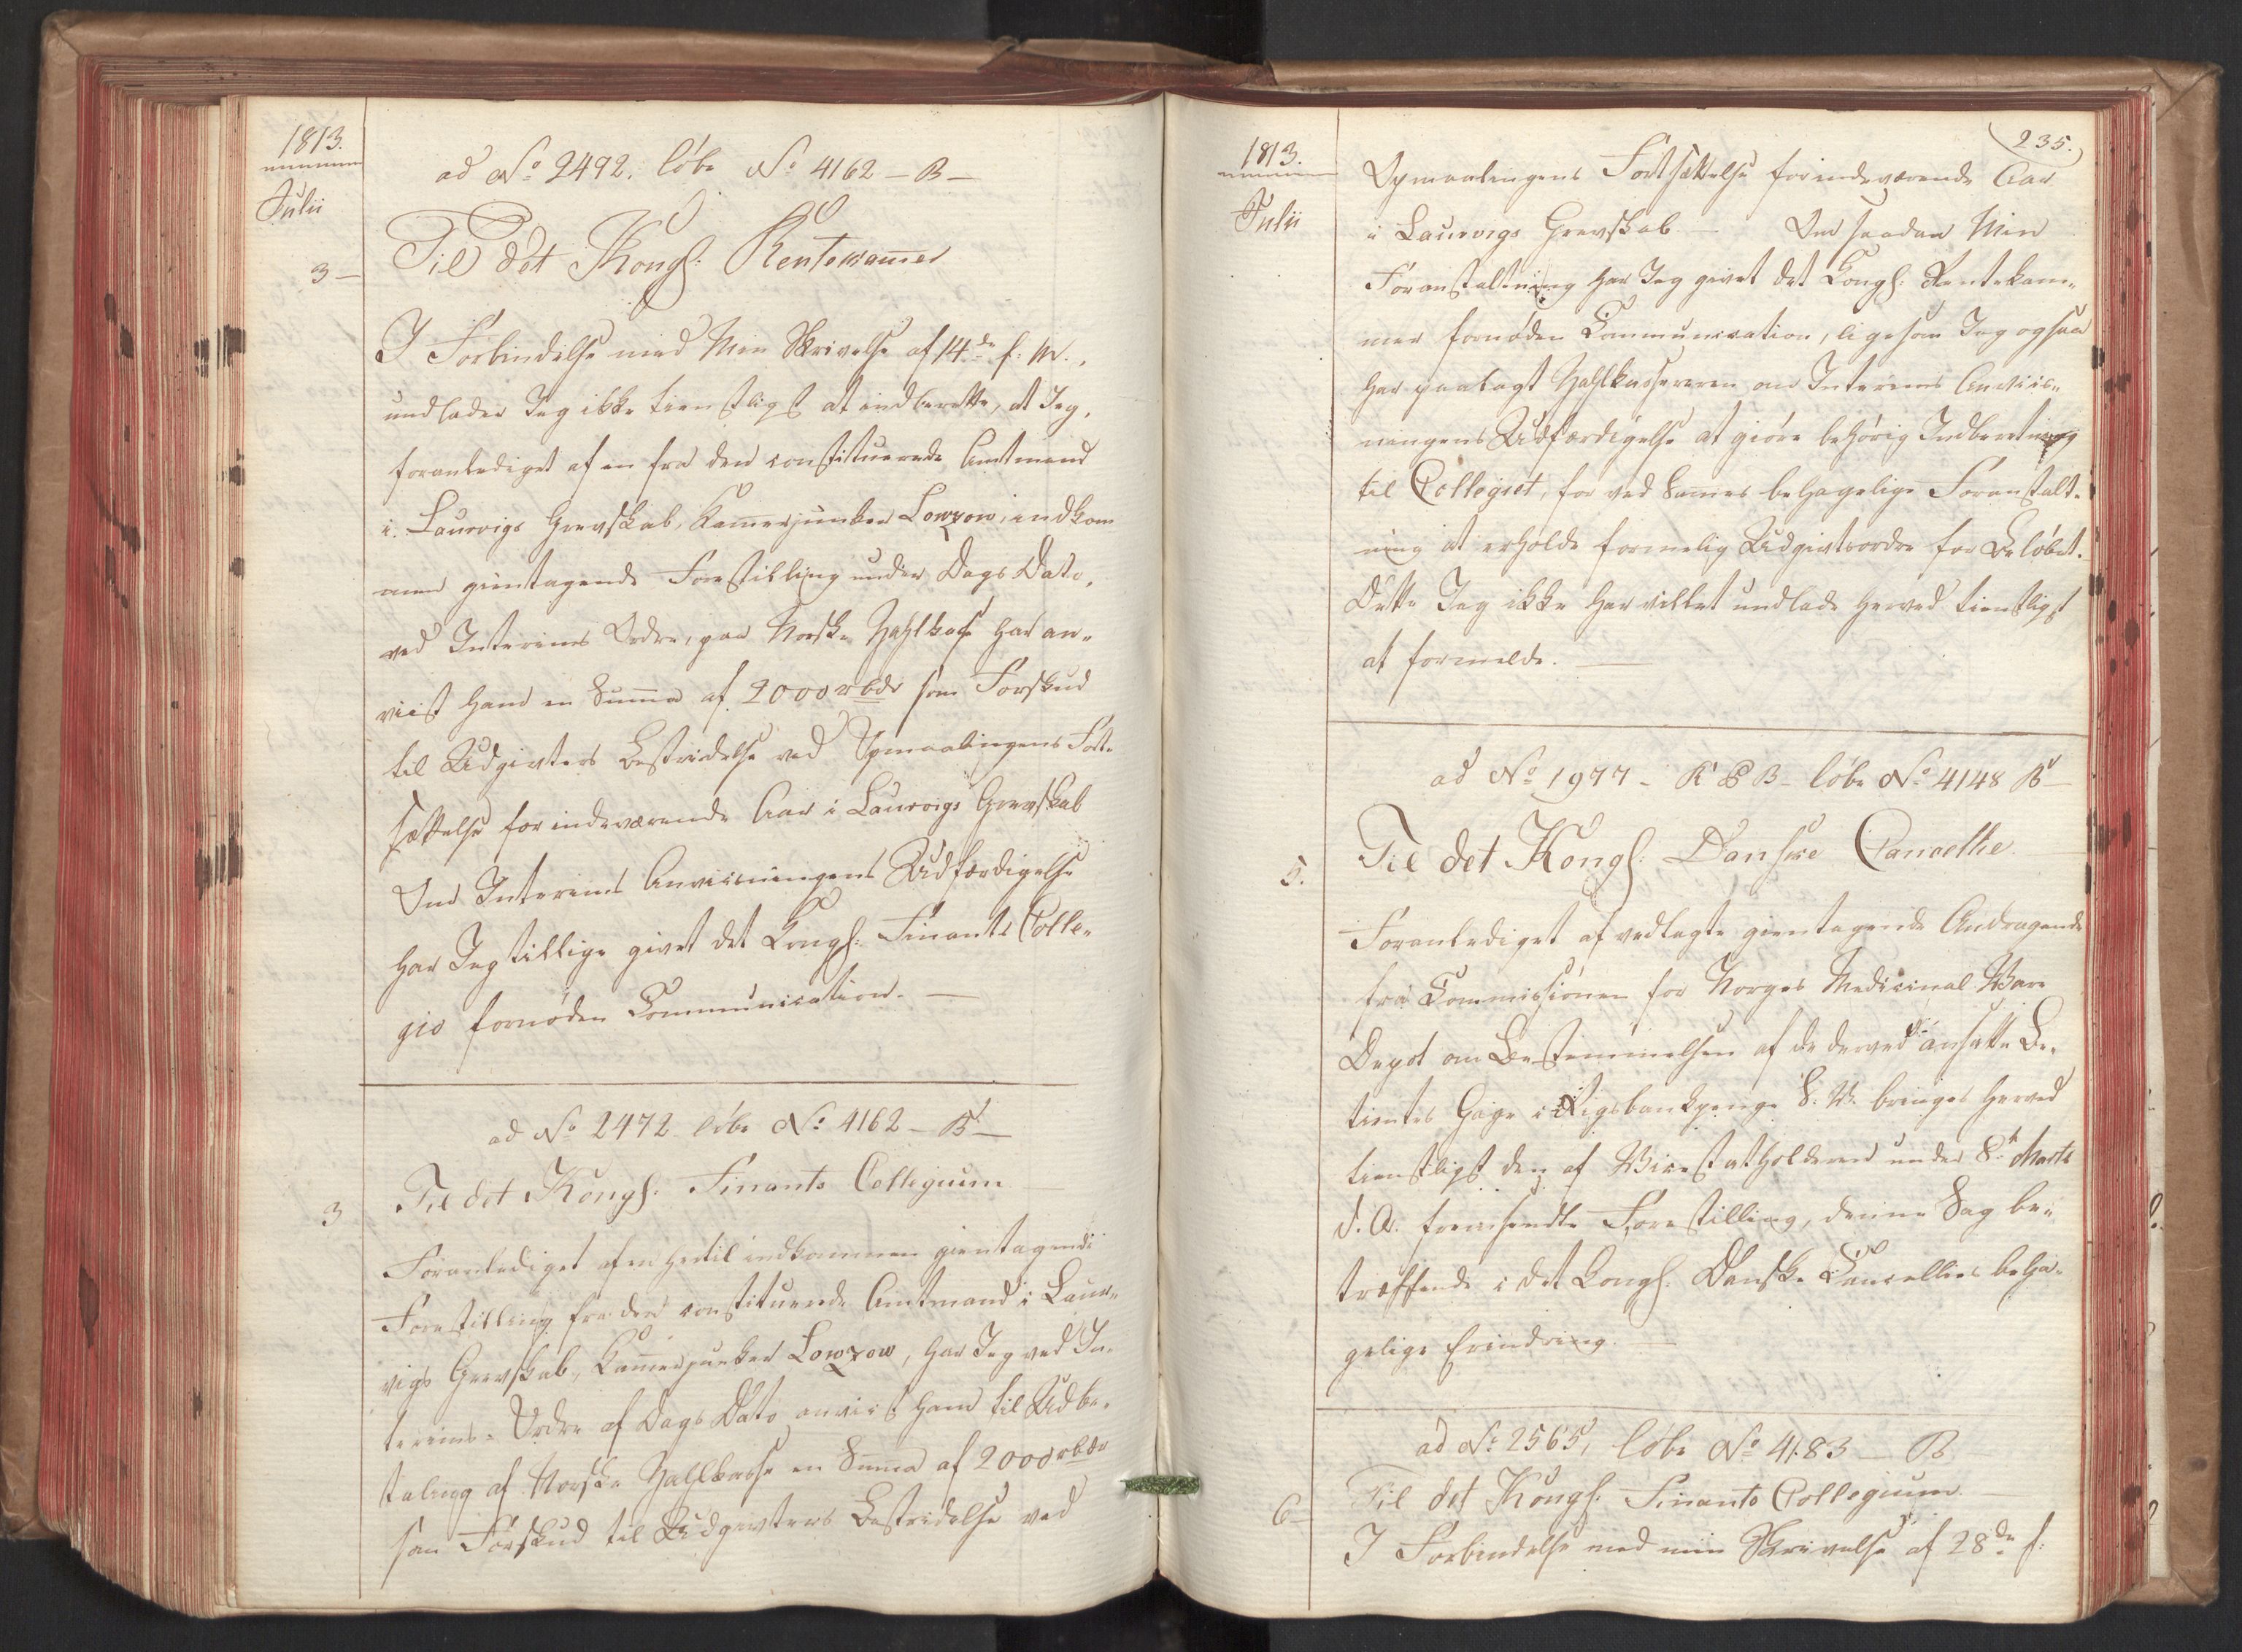 1813.
Julii
ad No 2492. löbe No 4162 - B -
3 -
Til det Kongl: Rentekamer
I Forbindelse med Min Skrivelse af 14de f: M.,
undlader Jeg ikke tienstligst at indberette, at Jeg,
foranlediget af en fra den constituerede Amtmand
i Laurvigs Grevskab, Kamerjunker Lowzow, indkom
men gientagende Forestilling under Dags Dato,
ved Interims Ordre, paa Norske Zahlkasse har an-
viist ham en Summa af 2000 rbdr som Forskud
til Udgivters Bestridelse ved Opmaalingens Fort-
sættelse for indeværende Aar i Laurvigs Grevskab
Om Interims Anviisningens Udfærdigelse
har Jeg tillige givet det Kongl: Finants Colle-
gio fornöden Communication. -
ad No 2472 löbe No 4162 - B -
3
Til det Kongl: Finants Collegium
Foranlediget af en hertil indkommen gientagende
Forestilling fra den constituerede Amtmand i Laur-
vigs Grevskab, Kamerjunker Lowzow, har Jeg ved In-
terims-Ordre af Dags Dato anviist ham til Udbe-
taling af Norske Zahlkasse en Summa af 2000 rbdr
som Forskud til Udgivters Bestridelse ved
235.
1813.
Julii
Opmaalingens Fortsættelse for indeværende Aar
i Laurvigs Grevskab - Om saadan Min
Foranstaltning har Jeg givet det Kongl: Rentekam-
mer fornöden Communication, ligesom Jeg ogsaa
har paalagt Zahlkassereren om Interims Anviis-
ningens Udfærdigelse at giöre behörig Indberetning
til Collegiet, for ved Sammes behagelige Foranstalt-
ning at erholde formelig Udgivtsordre for Belöbet.
Dette Jeg ikke har villet undlade herved tienstligst
at formelde. -
ad No 1977 - K B - löbe No 4148 B -
5.
Til det Kongl: Danske Cancellie
Foranlediget af vedlagte gientagende Andragende
fra Commissionen for Norges Medicinal Ware
Depot om Bestemmelsen af de derved ansatte Be-
tientes Gage i Rigsbankpenge S. V. bringes herved
tienstligst den af Vicestatholderen under 8de Marts
d. A. fremsendte Forestilling, denne Sag be-
træffende i det Kongl: Danske Cancellies beha-
gelige Erindring. -
ad No 2565, löbe No 4183 - B
6 -
Til det Kongl: Finants Collegium.
I Forbindelse med min Skrivelse af 28de f: